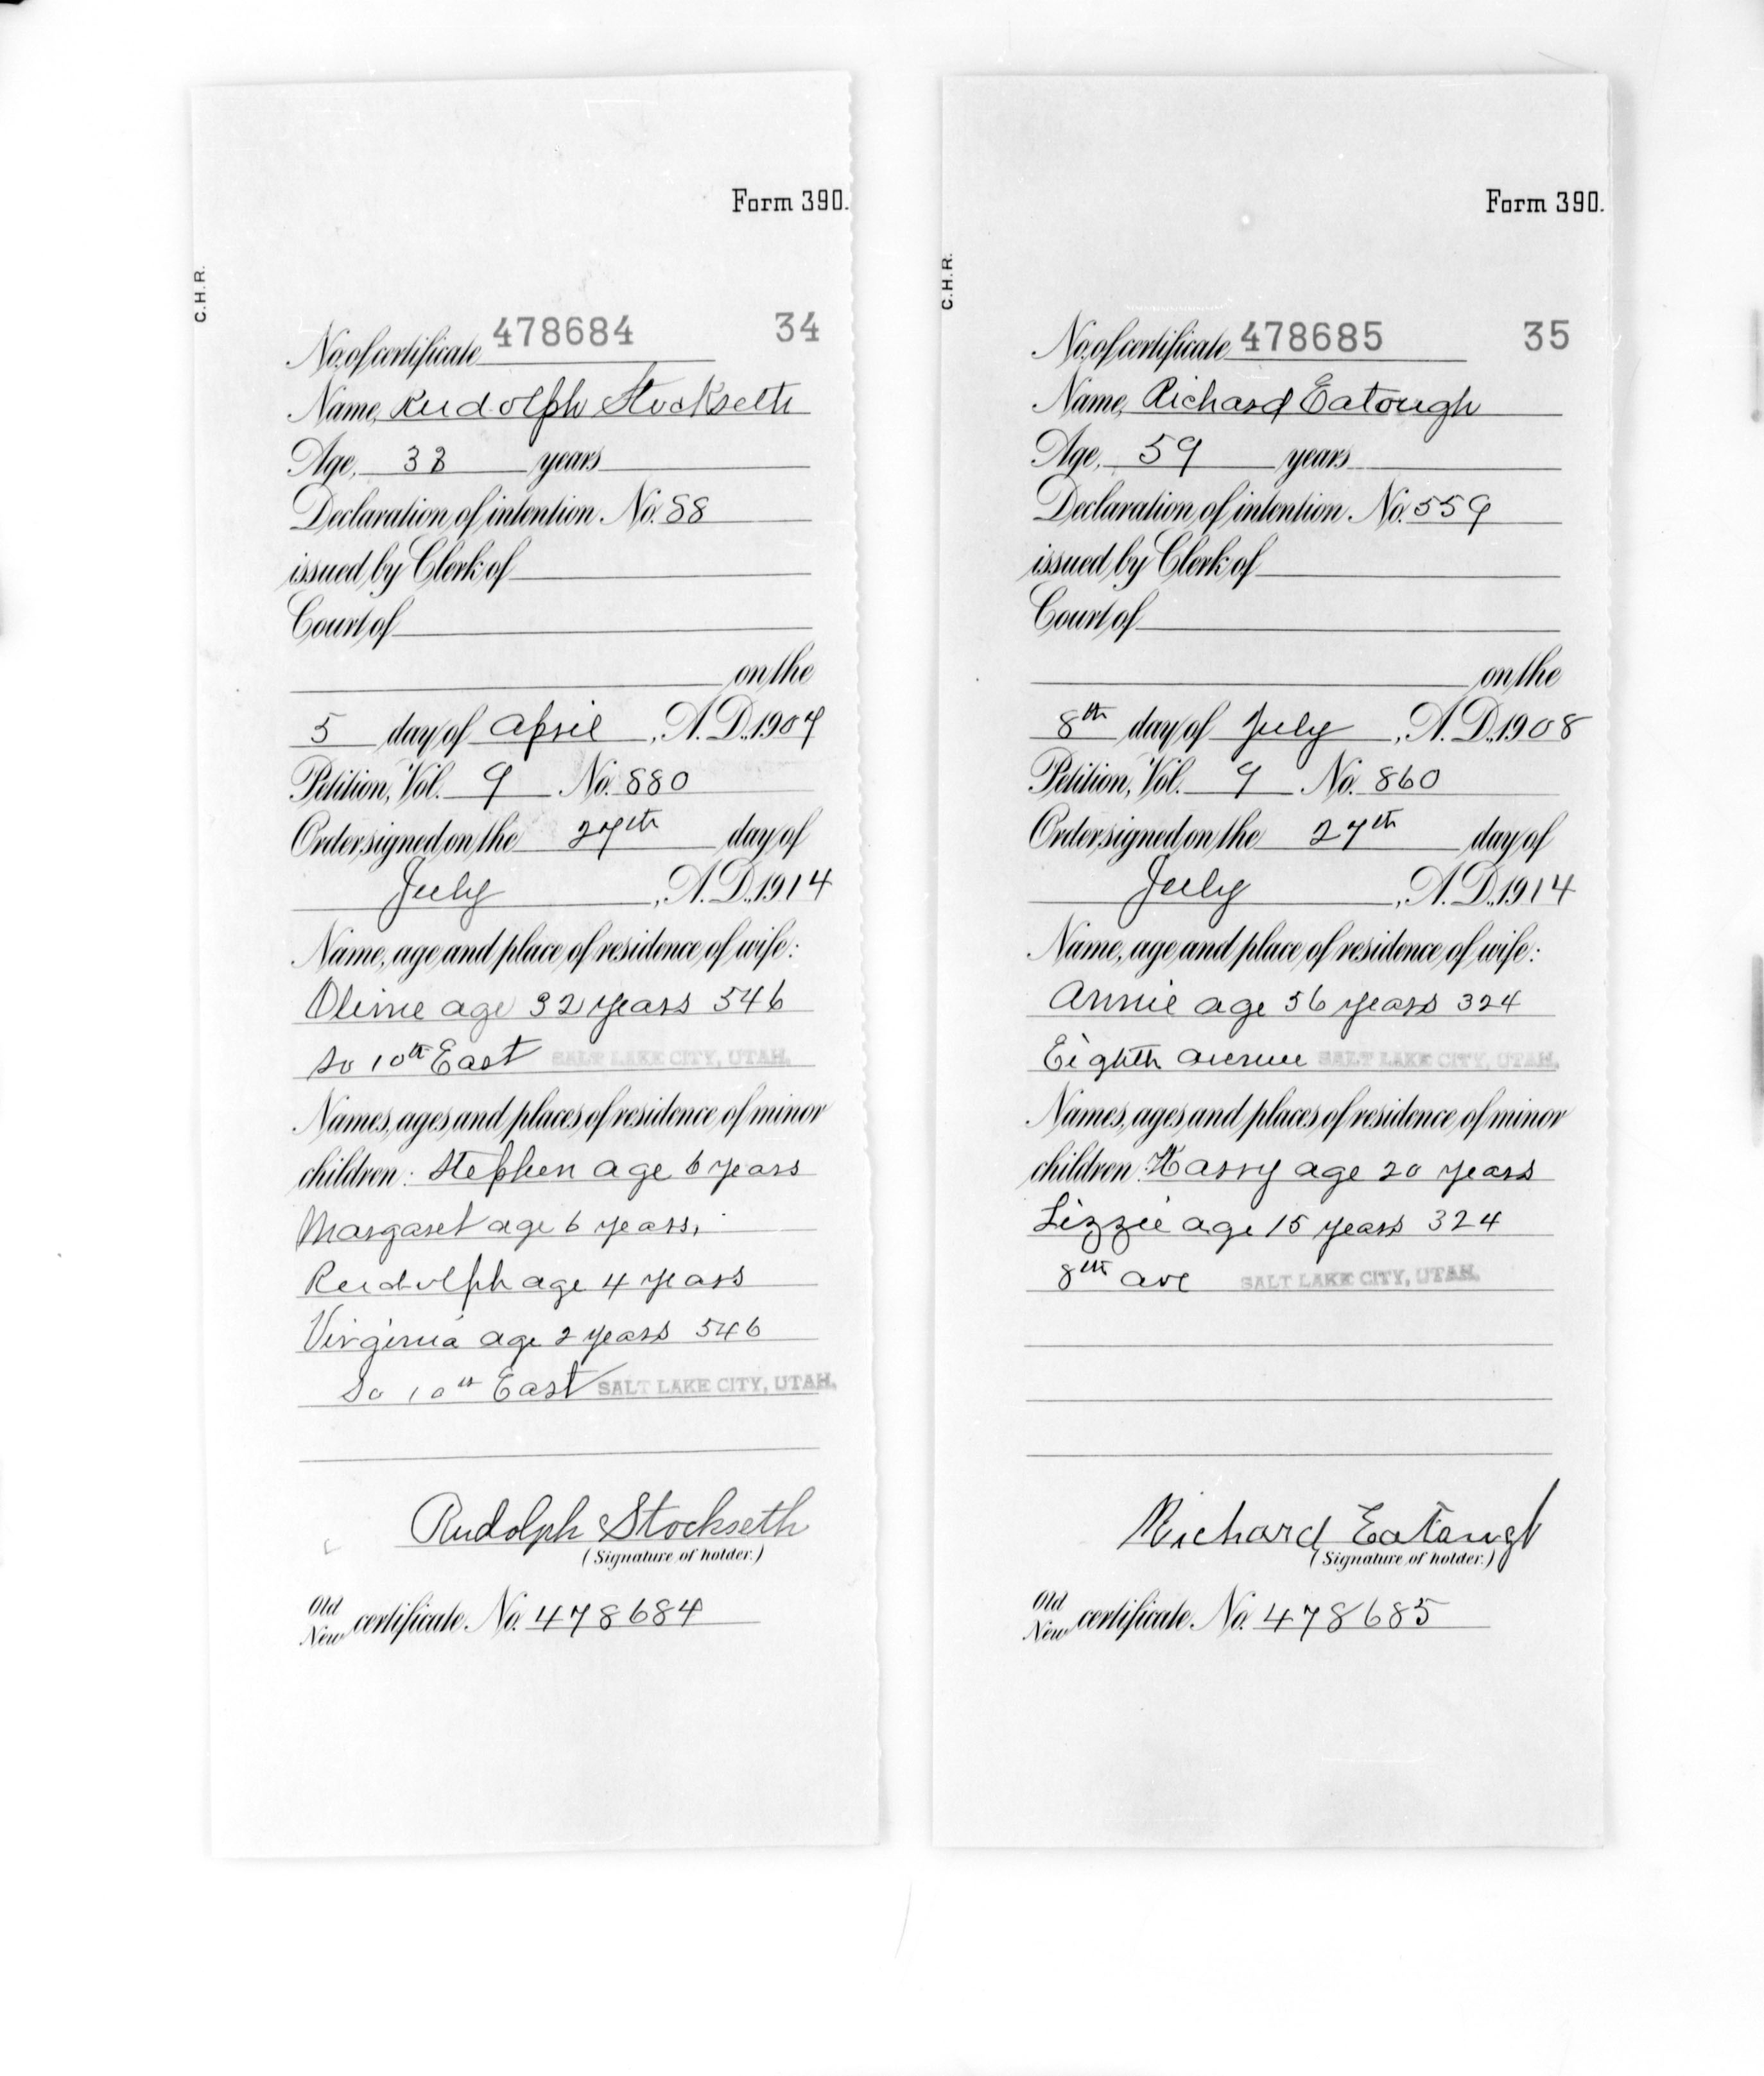 Form 390.
C.H.R.
No. of certificate 478684 34
Name, Rudolph Stockseth
Age, 33 years
Declaration of intention No. 88
issued by Clerk of
Court of
on the
5 day of April, A.D. 1907
Petition, Vol. 9 No. 880
Order signed on the 27th day of
July, A.D. 1914
Name, age and place of residence of wife:
Oline age 32 years 546
So 10th East SALT LAKE CITY, UTAH.
Names, ages and places of residence of minor
children: Stephen age 6 years
Margaret age 6 years,
Rudolph age 4 years
Virginia age 2 years 546
So 10th East SALT LAKE CITY, UTAH.
Rudolph Stockseth
(Signature of holder.)
Old
New certificate No. 478684
Form 390.
C.H.R.
No. of certificate 478685 35
Name, Richard Eatough
Age, 59 years
Declaration of intention No. 559
issued by Clerk of
Court of
on the
8th day of July, A.D. 1908
Petition, Vol. 9 No. 860
Order signed on the 27th day of
July, A.D. 1914
Name, age and place of residence of wife:
Annie age 56 years 324
Eighth avenue SALT LAKE CITY, UTAH.
Names, ages and places of residence of minor
children: Harry age 20 years
Lizzie age 15 years 324
8th ave SALT LAKE CITY, UTAH.
Richard Eatough
(Signature of holder.)
Old
New certificate No. 478685